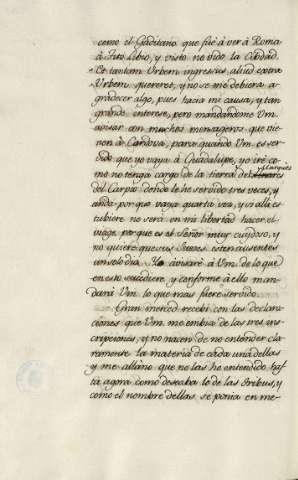 como el Gaditano que fuè à vèr à Roma
à Tito Libio, y visto no vido la Ciudad.
Et tantam Urbem ingressus, aliud extra
Urbem quereret, y no se me debiera a-
gradecer algo, pues hacia mi causa, y tan
grande interese, pero mandandome Vm.
avisar con muchos menageros que vie-
nen à Cordova, para quando Vm. es ser-
bido que yo vaya à Guadalupe, yo iré co-
mo no tenga cargo de la tierra del Marques
del Carpio donde le he servido tres veces, y
anda por que vaya quarta vez, y si allà es-
tubiere no serà en mi libertad hacer el
viage, por que es el Señor muy cuydoso, y
no quiere que sus Jueces esten ausentes
un solo dia. Yo avisarè à Vm. de lo que
en esto succediere, y conforme à ello man-
darà Vm. lo que mas fuere servido.
Gran merced recebi con las declara-
ciones que Vm. me embia de las tres ins-
cripciones, y no nacen de no entender cla-
ramente la materia de cada una dellas
y me allano que no las he entendido has-
ta agora como deseaba lo de las tribus, y
como el nombre dellas se ponia en me-